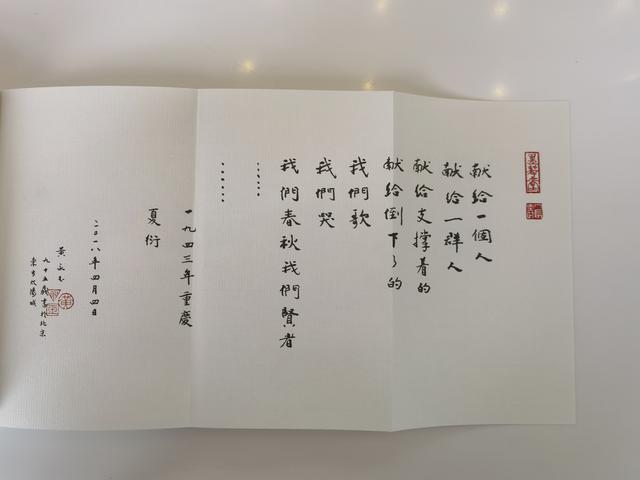 献给一個人
献给一群人
献给支撑着的
献给倒下了的
我們歌
我們哭
……
我們春秋我們賢者
……
一九四三年重慶
夏衍
二〇一八年四月四日
黄永玉
九十五歲書於北京
東方太陽城